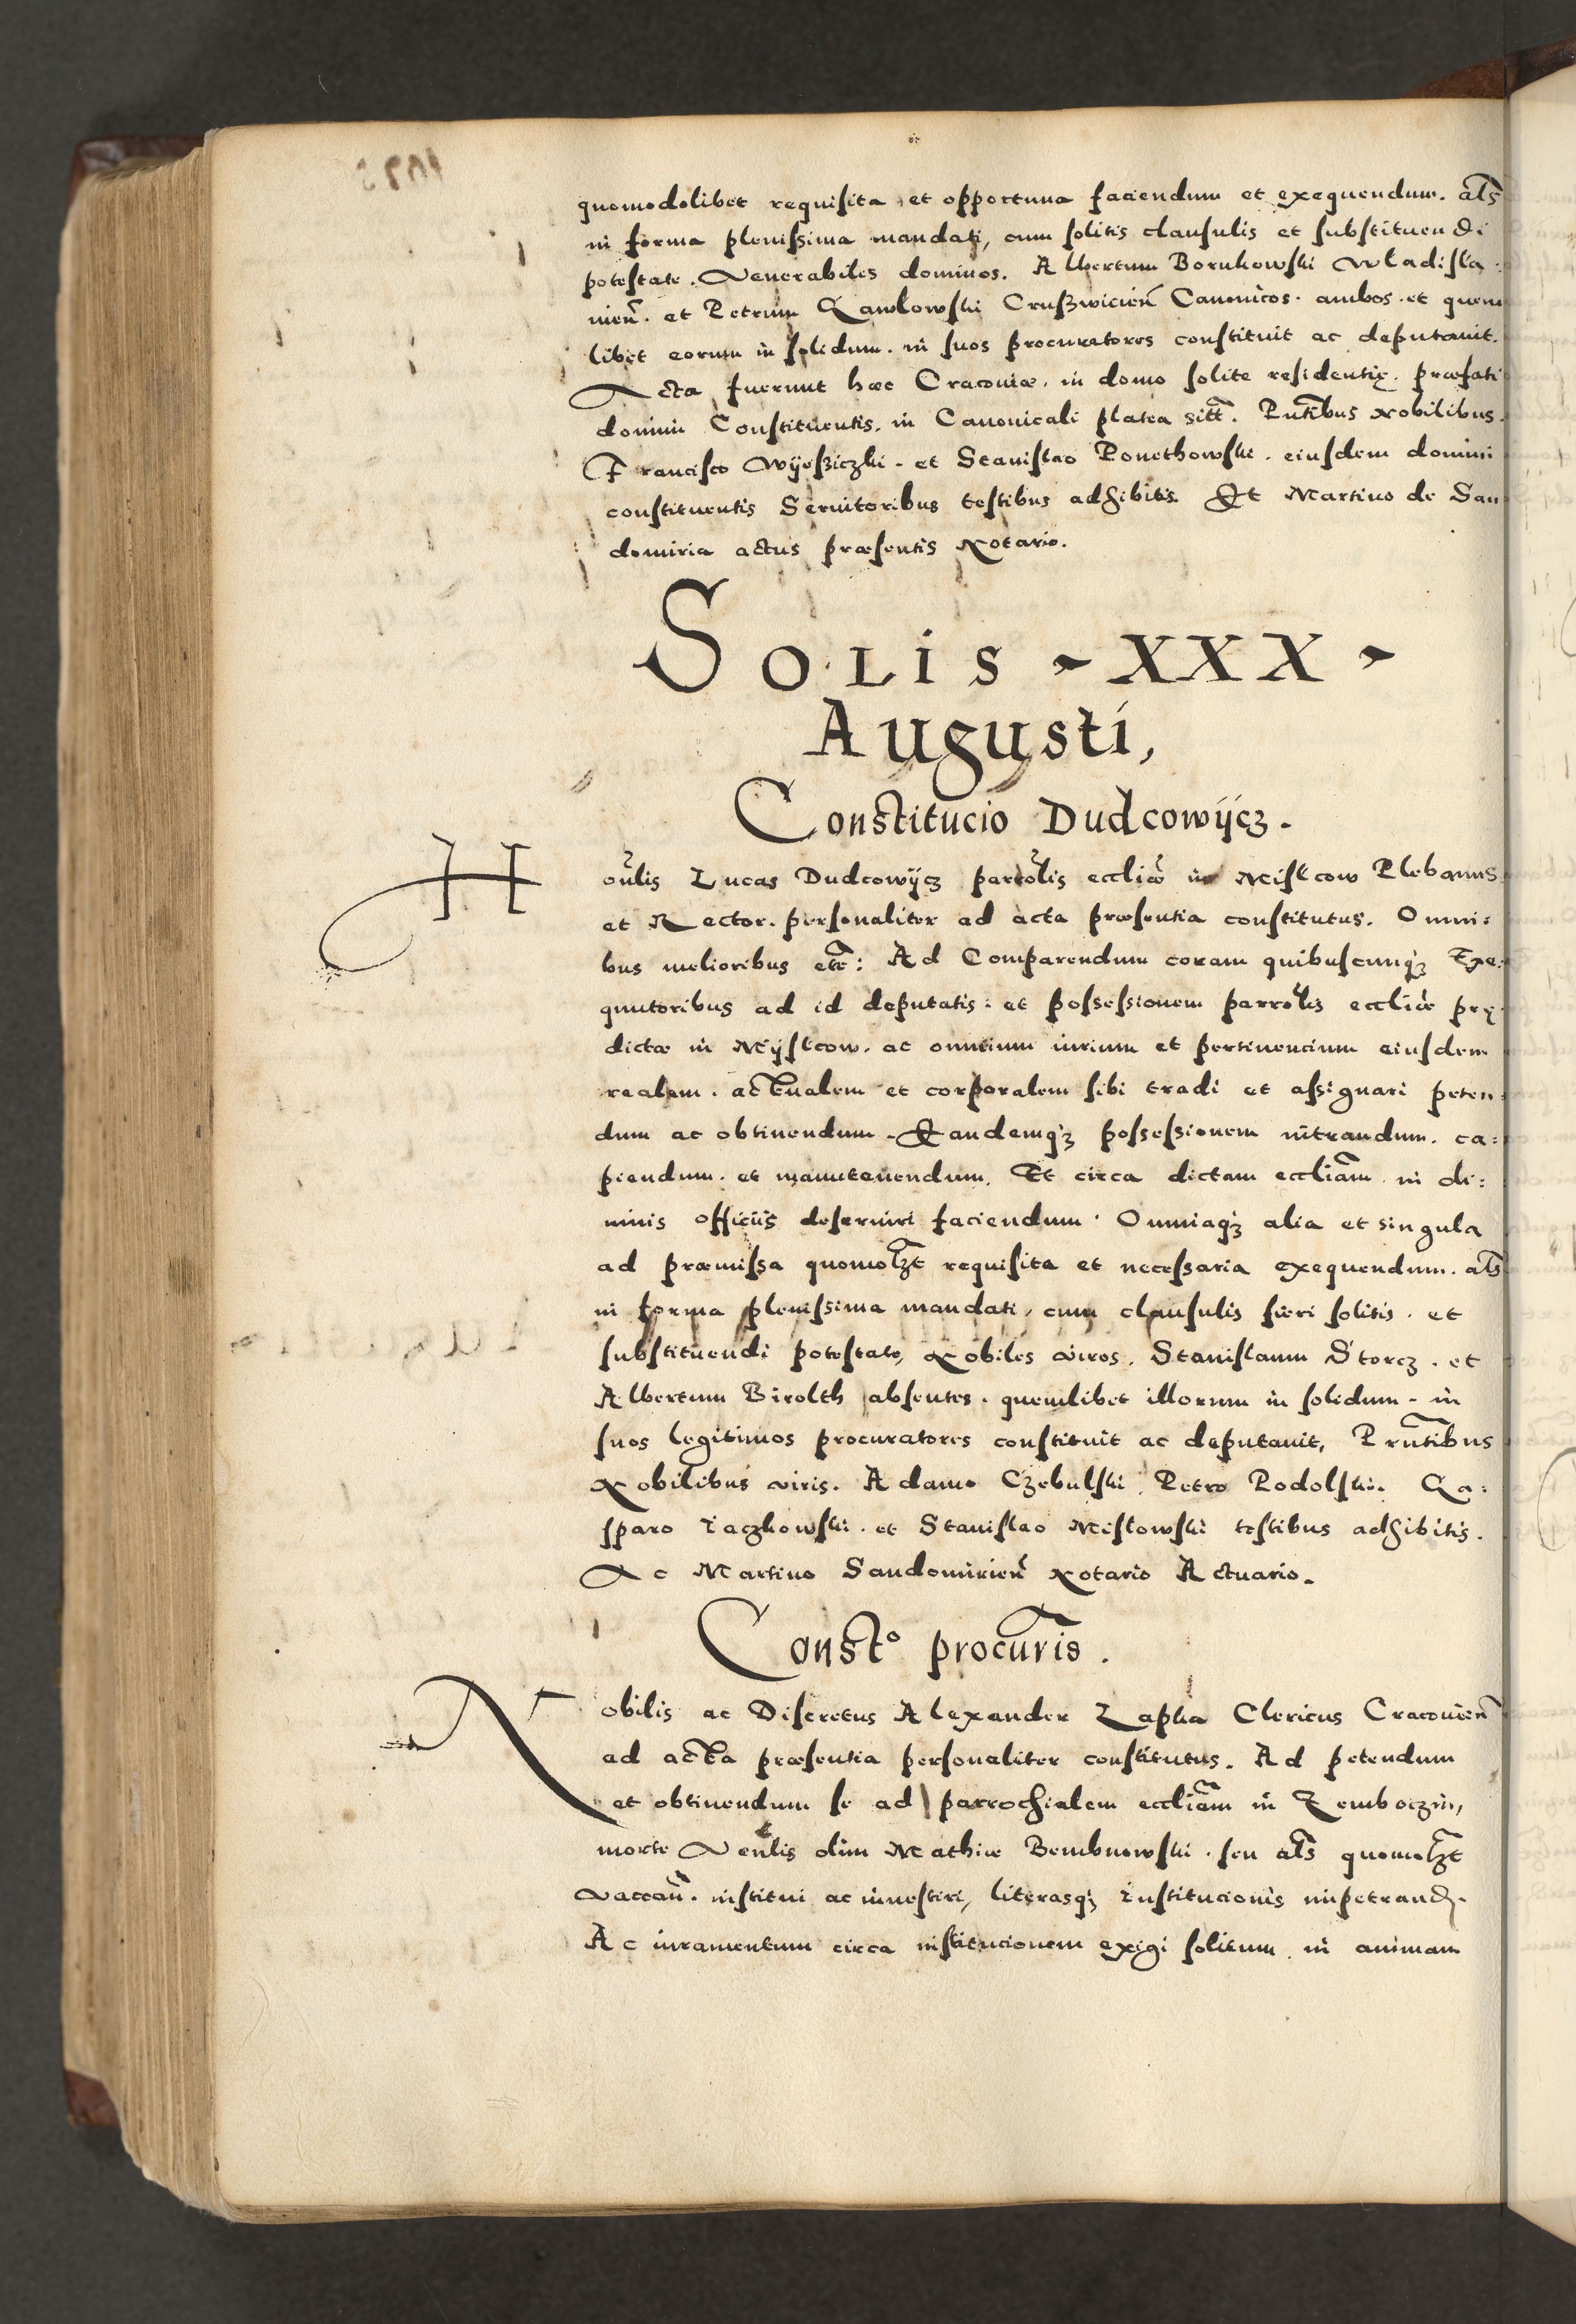 quomodolibet requisita et opportuna faciendum et exequendum. als
in forma plenissima mandati, cum solitis clausulis et substituendi
potestate. Venerabiles dominos. Albertum Bornkowski Wladisla:
vien. et Petrum Kawlowski Cruszwicien Canonicos. ambos. et quem
libet eorum in solidum. in suos procuratores constituit ac deputavit.
Acta fuerunt haec Cracoviae. in domo solite residentię. praefati
domini Constituentis. in Canonicali platea sitt. Pntibus Nobilibus.
Francisco Wijesziczki. et Stanislao Ponethowski. eiusdem domini
constituentis Servitoribus testibus adhibitis. Et Martino de San
domiria actus praesentis Notario.
SOLIS - XXX -
Augusti,
Constitucio Dudcowijcz.
Honlis Lucas Dudcowijcz parrolis eccliae in Mislcow Plebanus
et Rector. personaliter ad acta praesentia constitutus. Omni:
bus melioribus etc: Ad Comparendum coram quibuscunq3 Exe:
quutoribus ad id deputatis. et possessionem parrolis eccliae prę:
dictae in Mijslcow. ac omnium iurium et pertinencium eiusdem
realem. actualem et corporalem sibi tradi et assignari peten:
dum ac obtinendum. Eandemq3 possessionem intrandum. ca:
piendum. et manutenendum. Et circa dictam eccliam in di:
vinis officiis deserviri faciendum. Omniaq3 alia et singula
ad praemissa quomolzt requisita et necessaria exequendum. als
in forma plenissima mandati, cum clausulis fieri solitis. et
substituendi potestate, Nobiles viros. Stanislaum Storcz. et
Albertum Birolth absentes. quemlibet illorum in solidum. in
suos legitimos procuratores constituit ac deputavit, Prntibus
Nobilibus viris. Adamo Czebulski Petro Podolski. Ga:
sparo Iaczkowski. et Stanislao Mislowski testibus adhibitis.
Ac Martino Sandomirien Notario Actuario.
Consto procuris.
Nobilis ac Discretus Alexander Lapka Clericus Cracovien
ad acta praesentia personaliter constitutus. Ad petendum
et obtinendum se ad parrochialem eccliam in Zemboczin,
morte Venlis olim Mathiae Bembnowski. seu als quomolzt
Vaccan. institui ac investiri, literasq3 Institucionis impetrand.
Ac iuramentum circa institucionem exigi solitum in animam